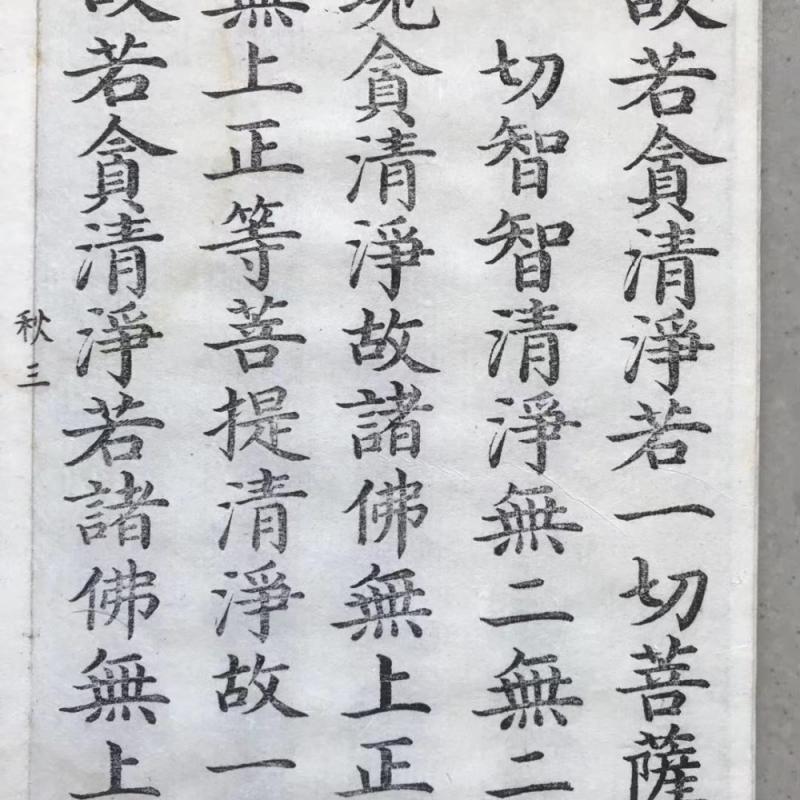 故若貪清淨若一切菩薩
切智智清淨無二無二
貪清淨故諸佛無上正
無上正等菩提清淨故一
故若貪清淨若諸佛無上
秋三